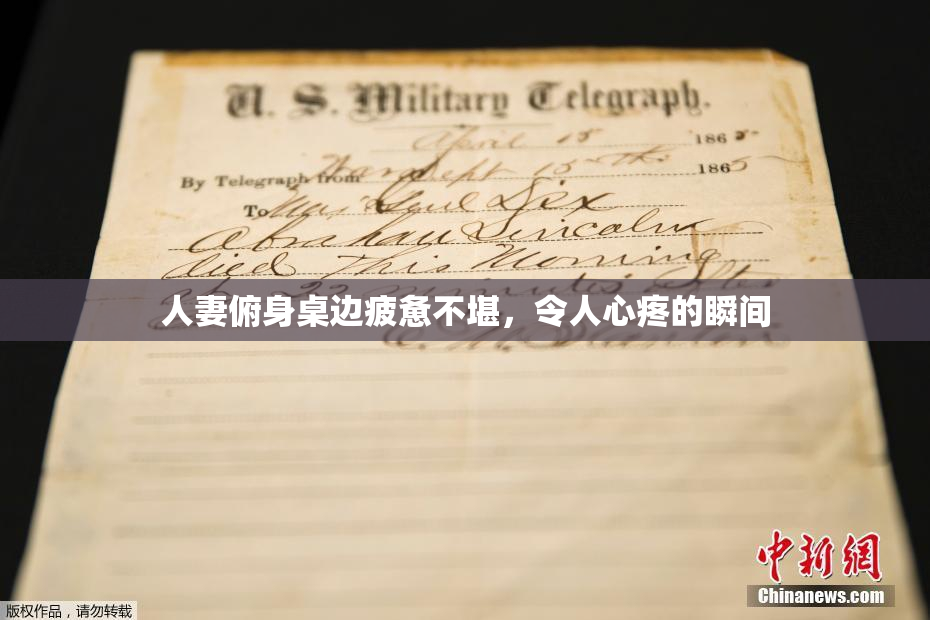 U. S. Military Telegraph.
April 15 1865
By Telegraph from War Dept 15th 1865
To Maj Genl Dix
Abraham Lincoln
died This Morning
at 22 minutes after
人妻俯身桌边疲惫不堪，令人心疼的瞬间
E. M. Stanton
中新网
Chinanews.com
版权作品，请勿转载